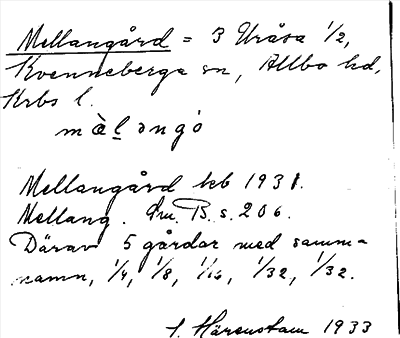 Mellangård = 3 Uråsa 1/2,
Kvenneberga sn, Allbo hd,
Krbs l.
màl̥əngo
Mellangård kb 1931.
Mellang. Dm. B. s. 206.
Därav 5 gårdar med samma
namn, 1/4, 1/8, 1/16, 1/32, 1/32.
S. Härenstam 1933